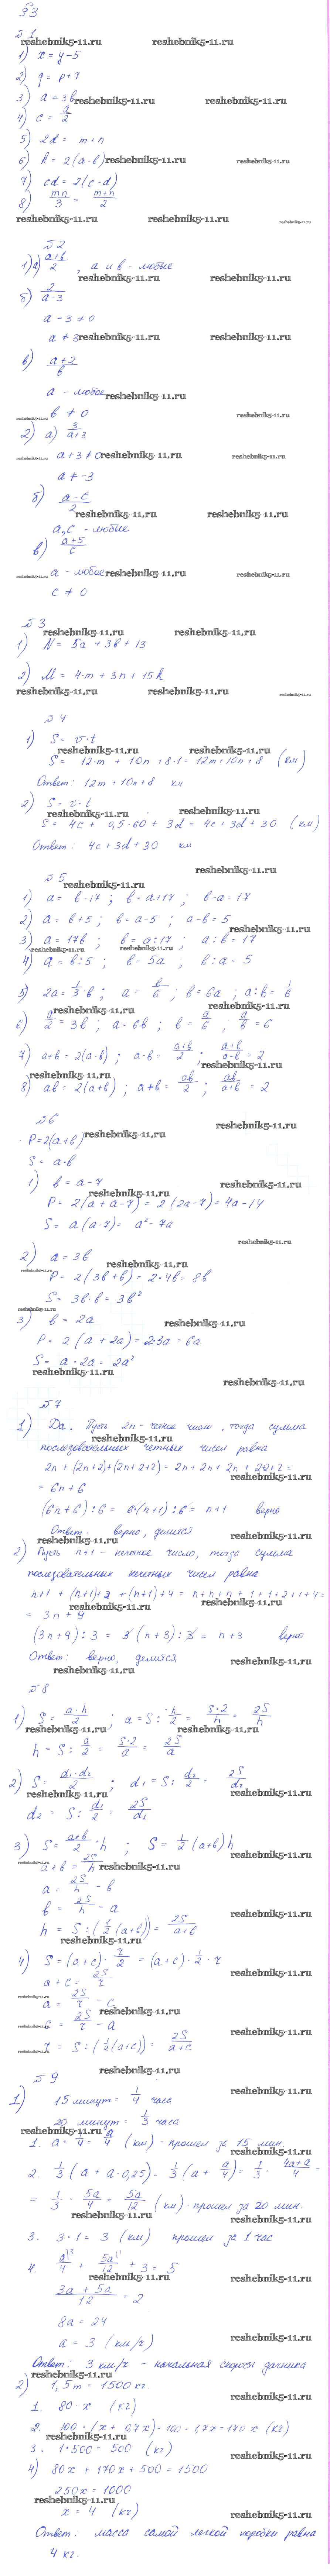 §3
№1
reshebnik5-11.ru reshebnik5-11.ru
1) x = y - 5
2) q = p + 7
3) a = 3b
reshebnik5-11.ru reshebnik5-11.ru
4) c = a/2
5) 2d = m + n
6) k = 2(a - b)
reshebnik5-11.ru reshebnik5-11.ru
7) cd = 2(c - d)
8) mn/3 = m+n/2
reshebnik5-11.ru reshebnik5-11.ru
№2
1) а) a+b/2 , a и b - любые
reshebnik5-11.ru reshebnik5-11.ru
б) 2/a-3
a - 3 ≠ 0
a ≠ 3
reshebnik5-11.ru reshebnik5-11.ru
в) a+2/b
a - любое
reshebnik5-11.ru
b ≠ 0
2) а) 3/a+3
a + 3 ≠ 0
reshebnik5-11.ru reshebnik5-11.ru
a ≠ -3
б) a-c/2
reshebnik5-11.ru reshebnik5-11.ru
a, c - любые
в) a+5/c
a - любое
reshebnik5-11.ru reshebnik5-11.ru
c ≠ 0
№3
reshebnik5-11.ru reshebnik5-11.ru
1) N = 5a + 3b + 13
2) M = 4·m + 3n + 15k
reshebnik5-11.ru reshebnik5-11.ru
№4
1) S = v·t
reshebnik5-11.ru reshebnik5-11.ru
S = 12·m + 10n + 8·1 = 12m + 10n + 8 (км)
Ответ: 12m + 10n + 8 км
2) S = v·t
reshebnik5-11.ru reshebnik5-11.ru
S = 4c + 0,5·60 + 3d = 4c + 3d + 30 (км)
Ответ: 4c + 3d + 30 км
reshebnik5-11.ru
№5
reshebnik5-11.ru
1) a = b - 17 ; b = a + 17 ; b - a = 17
2) a = b + 5 ; b = a - 5 ; a - b = 5
reshebnik5-11.ru
3) a = 17b ; b = a : 17 ; a : b = 17
reshebnik5-11.ru reshebnik5-11.ru
4) a = b : 5 ; b = 5a ; b : a = 5
5) 2a = 1/3·b ; a = b/6 ; b = 6a ; a : b = 1/6
reshebnik5-11.ru reshebnik5-11.ru
6) a/2 = 3b ; a = 6b ; b = a/6 ; a/b = 6
7) a + b = 2(a - b) ; a - b = a+b/2 ; a+b/a-b = 2
reshebnik5-11.ru reshebnik5-11.ru
8) ab = 2(a + b) ; a + b = ab/2 ; ab/a+b = 2
№6
reshebnik5-11.ru
P = 2(a + b)
reshebnik5-11.ru
S = a·b
1) b = a - 7
reshebnik5-11.ru reshebnik5-11.ru
P = 2(a + a - 7) = 2(2a - 7) = 4a - 14
S = a(a - 7) = a² - 7a
reshebnik5-11.ru
2) a = 3b
reshebnik5-11.ru
P = 2(3b + b) = 2·4b = 8b
S = 3b·b = 3b²
3) b = 2a
reshebnik5-11.ru
P = 2(a + 2a) = 2·3a = 6a
S = a·2a = 2a²
reshebnik5-11.ru
reshebnik5-11.ru
№7
1) Да. Пусть 2n - четное число, тогда сумма
reshebnik5-11.ru
последовательных четных чисел равна
2n + (2n+2) + (2n+2+2) = 2n + 2n + 2n + 2·2 + 2 =
reshebnik5-11.ru
= 6n + 6
(6n + 6) : 6 = 6·(n+1) : 6 = n + 1 верно
Ответ: верно, делится
reshebnik5-11.ru
2) Пусть n+1 - нечетное число, тогда сумма
последовательных нечетных чисел равна
n+1 + (n+1)+2 + (n+1)+4 = n + n + n + 1 + 1 + 2 + 1 + 4 =
reshebnik5-11.ru reshebnik5-11.ru
= 3n + 9
(3n + 9) : 3 = 3(n + 3) : 3 = n + 3 верно
Ответ: верно, делится
reshebnik5-11.ru
№8
1) S = a·h/2 ; a = S : h/2 = S·2/h = 2S/h
reshebnik5-11.ru reshebnik5-11.ru
h = S : a/2 = S·2/a = 2S/a
2) S = d₁·d₂/2 ; d₁ = S : d₂/2 = 2S/d₂
reshebnik5-11.ru reshebnik5-11.ru
d₂ = S : d₁/2 = 2S/d₁
3) S = a+b/2·h ; S = 1/2(a + b)h
reshebnik5-11.ru
a + b = 2S/h
reshebnik5-11.ru
a = 2S/h - b
b = 2S/h - a
reshebnik5-11.ru
h = S : (1/2(a+b)) = 2S/a+b
reshebnik5-11.ru
4) S = (a + c)·r/2 = (a + c)·1/2·r
a + c = 2S/r
reshebnik5-11.ru
a = 2S/r - c
reshebnik5-11.ru
c = 2S/r - a
r = S : (1/2(a+c)) = 2S/a+c
reshebnik5-11.ru
№9
1) 15 минут = 1/4 часа
reshebnik5-11.ru
20 минут = 1/3 часа
reshebnik5-11.ru
1. a·1/4 = a/4 (км) - прошел за 15 мин.
2. 1/3(a + a·0,25) = 1/3(a + a/4) = 1/3·4a+a/4 =
= 1/3·5a/4 = 5a/12 (км) - прошел за 20 мин.
reshebnik5-11.ru
3. 3·1 = 3 (км) прошел за 1 час
4. a/4 + 5a/12 + 3 = 5
reshebnik5-11.ru
3a + 5a/12 = 2
8a = 24
a = 3 (км/ч)
reshebnik5-11.ru
Ответ: 3 км/ч - начальная скорость дачника
reshebnik5-11.ru
2) 1,5 т = 1500 кг
1. 80·x (кг)
reshebnik5-11.ru
2. 100·(x + 0,7x) = 100·1,7x = 170x (кг)
3. 1·500 = 500 (кг)
4) 80x + 170x + 500 = 1500
250x = 1000
reshebnik5-11.ru
x = 4 (кг)
Ответ: масса самой легкой коробки равна
4 кг